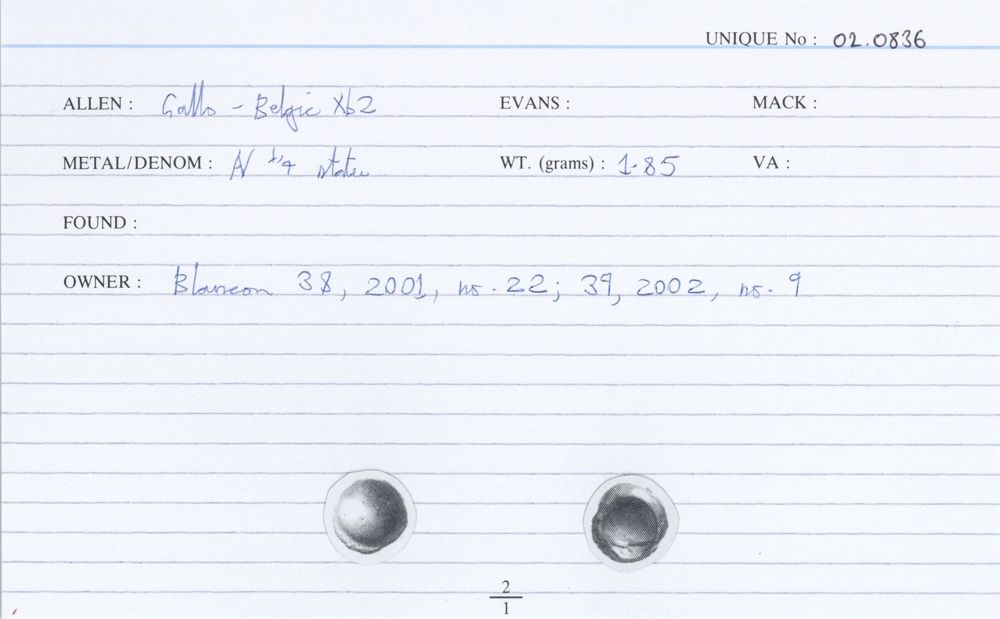 UNIQUE No : 02.0836
ALLEN : Gallo - Belgic Xb2 EVANS : MACK :
METAL/DENOM : N 1/4 stater WT. (grams) : 1.85 VA :
FOUND :
OWNER : 38, 2001, no. 22; 39, 2002, no. 9
2
1